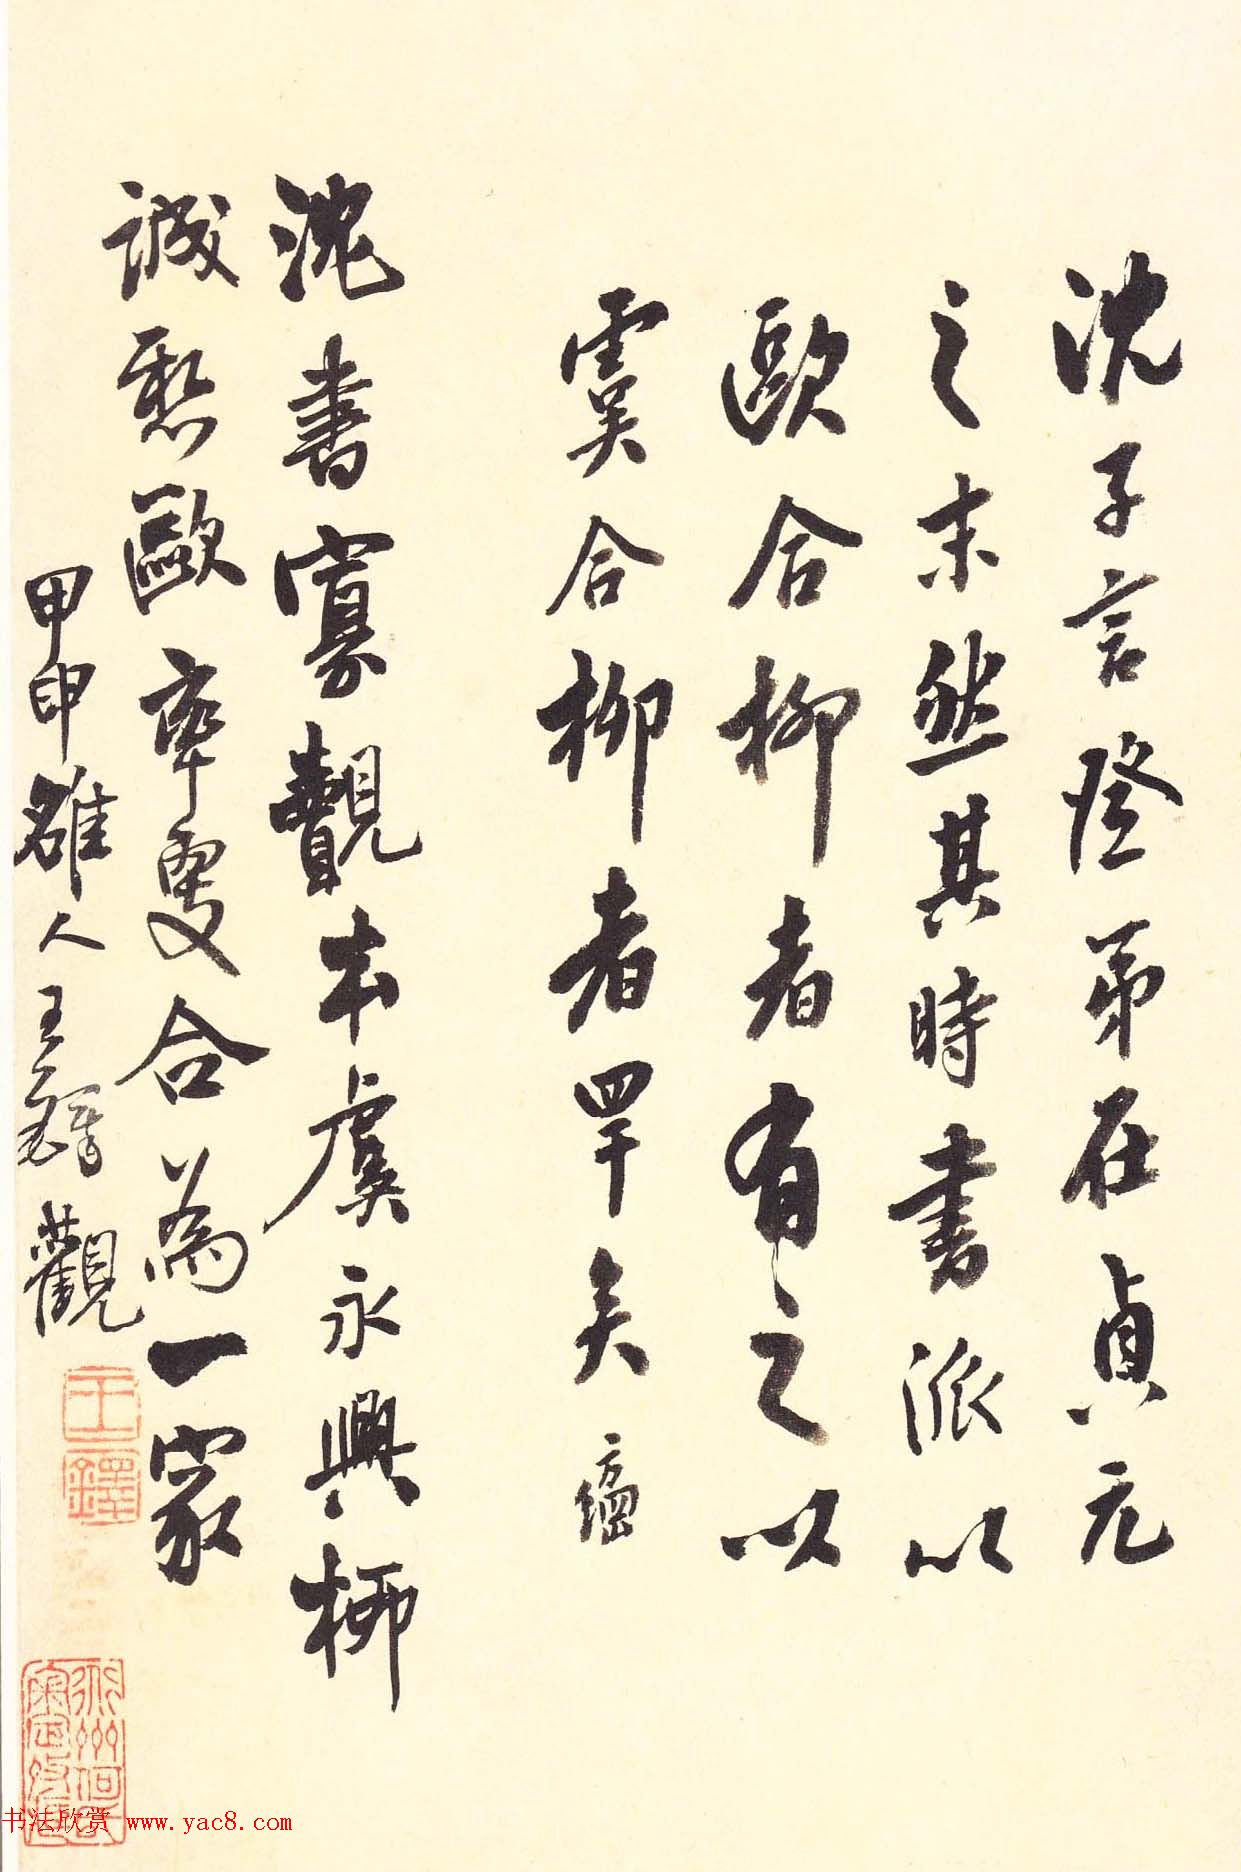 沈子言登第在貞元
之末然其時書派以
歐合柳者有之以
虞合柳者罕矣 方綱
沈書寡覯本虞永興柳
誠懸歐率更合為一家
甲申雒人王鐸觀
王鐸
书法欣赏 www.yac8.com